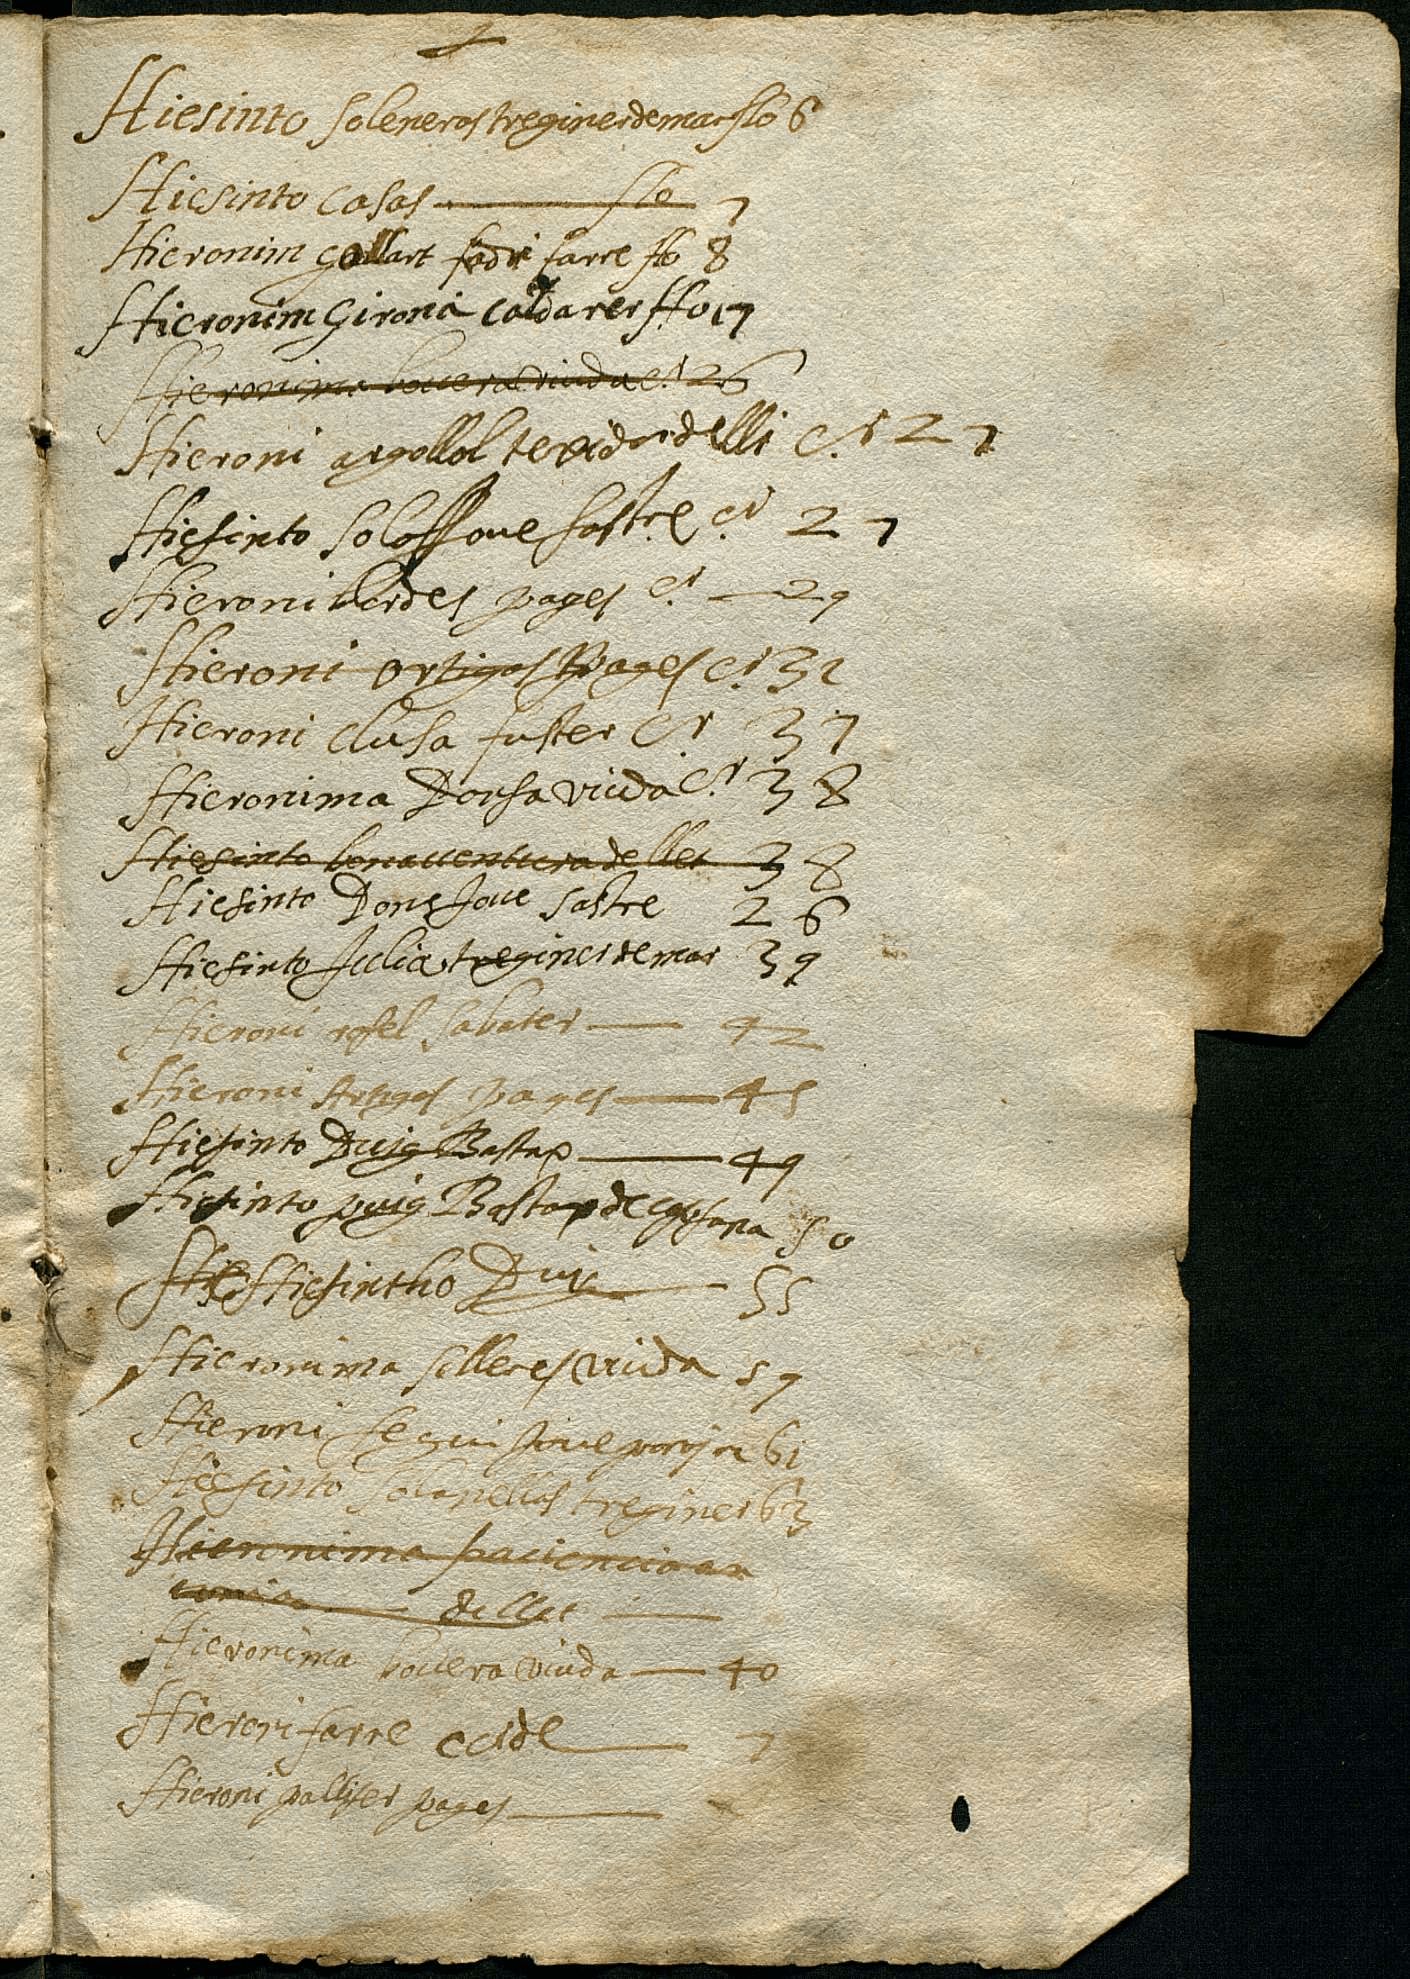 Hiesinto soleneros treginer de mar ffo 6
Hiesinto casas ffo 7
Hieronim gallart fadri farre ffo 8
Hieronim Girona caldarer ffo 17
Hieronima bouera viuda 26
Hieroni argollol texidor de lli 27
Hiesinto sola Joue sastre 27
Hieroni pages 29
Hieroni ortigas pages 32
Hieroni clusa fuster 37
Hieronima Dorsa viuda 38
Hiesinto bonauentura dellet 38
Hiesinto Dons Joue sastre 26
Hiesinto Julia treginer de mar 39
Hieroni rosel sabater 42
Hieroni Artigas pages 45
Hiesinto Puig Bastax 49
Hiesinto puig Bastax de capsana 50
Hiesintho Puig 55
Hieronima selleres viuda 59
Hieroni segui Joue 61
Hiesinto solanellas treginer 63
Hieronima paciencia
dellet
Hieronima bouera viuda 40
Hieroni farre 7
Hieroni palliser pages